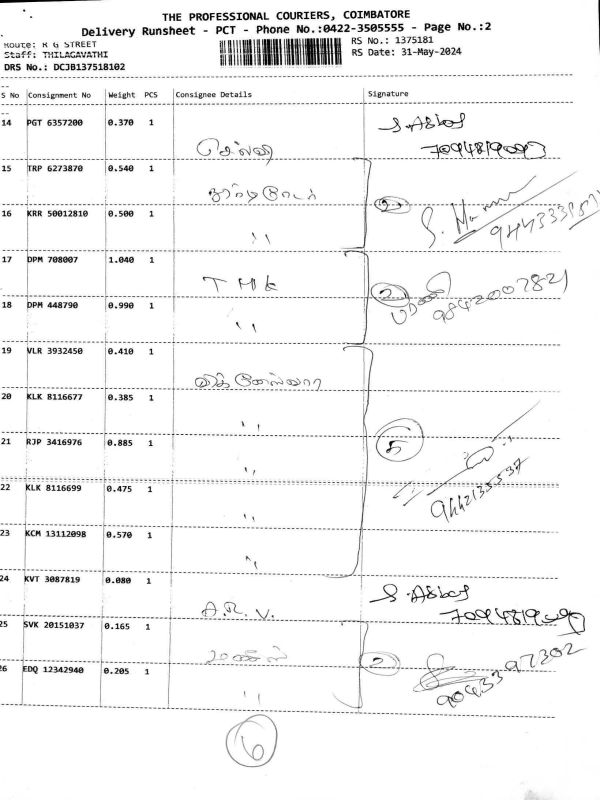 THE PROFESSIONAL COURIERS, COIMBATORE
Delivery Runsheet - PCT - Phone No.:0422-3505555 - Page No.:2
Route: R G STREET
RS No.: 1375181
Staff: THILAGAVATHI
RS Date: 31-May-2024
DRS No.: DCJB137518102
S No Consignment No Weight PCS Consignee Details Signature
14 PGT 6357200 0.370 1
செல்வி
7094819097
15 TRP 6273870 0.540 1
2
16 KRR 50012810 0.500 1
''
17 DPM 708007 1.040 1
T M K
2
9842007821
18 DPM 448790 0.990 1
''
19 VLR 3932450 0.410 1
20 KLK 8116677 0.385 1
''
5
21 RJP 3416976 0.885 1
''
9442135537
22 KLK 8116699 0.475 1
''
23 KCM 13112098 0.570 1
''
24 KVT 3087819 0.080 1
A.R.V.
25 SVK 20151037 0.165 1
2
9043397302
26 EDQ 12342940 0.205 1
''
6